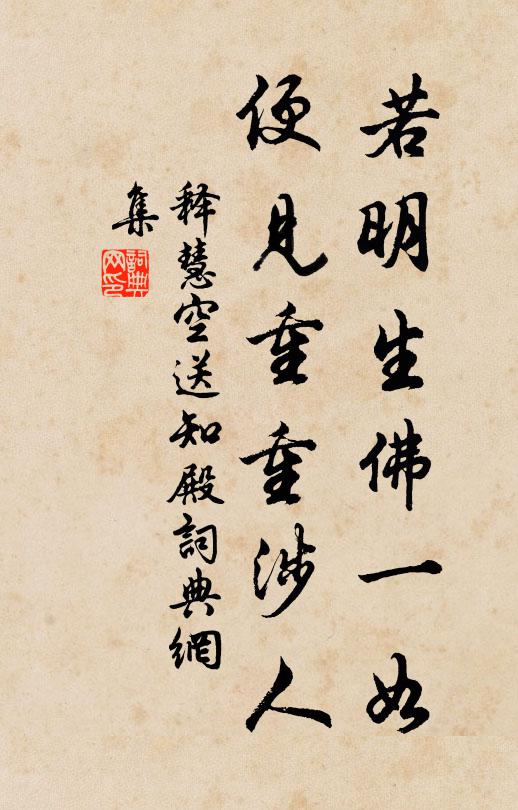 若明生佛一如
便見重重涉人
释慧空送知殿詞典網
集
詞典
网印